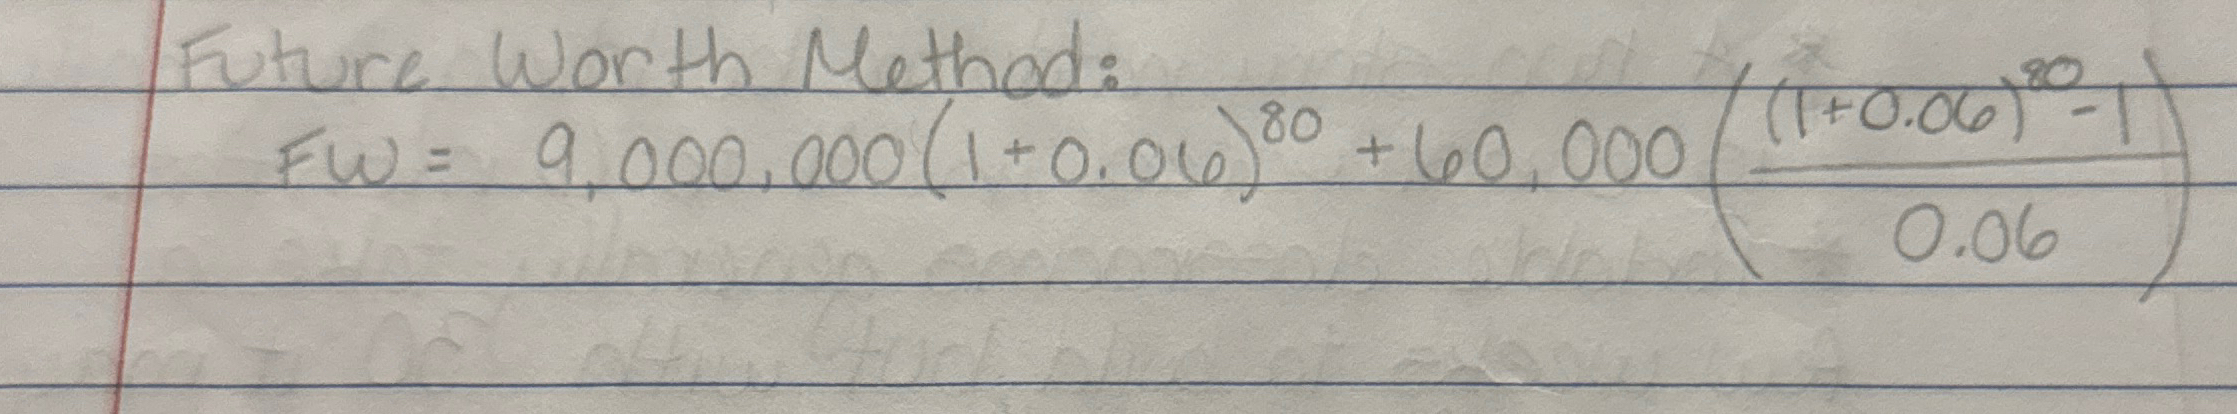 Future Worth Method:
FW = 9,000,000(1+0.06)^80 + 60,000(((1+0.06)^80 - 1)/0.06)